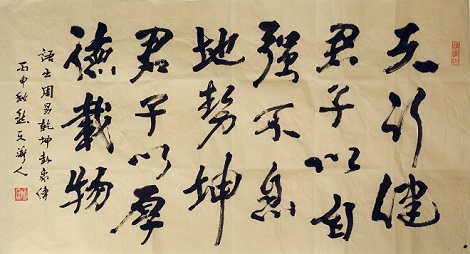 天行健
君子以自
强不息
地势坤
君子以厚
德载物
语出周易乾坤卦象传
丙申